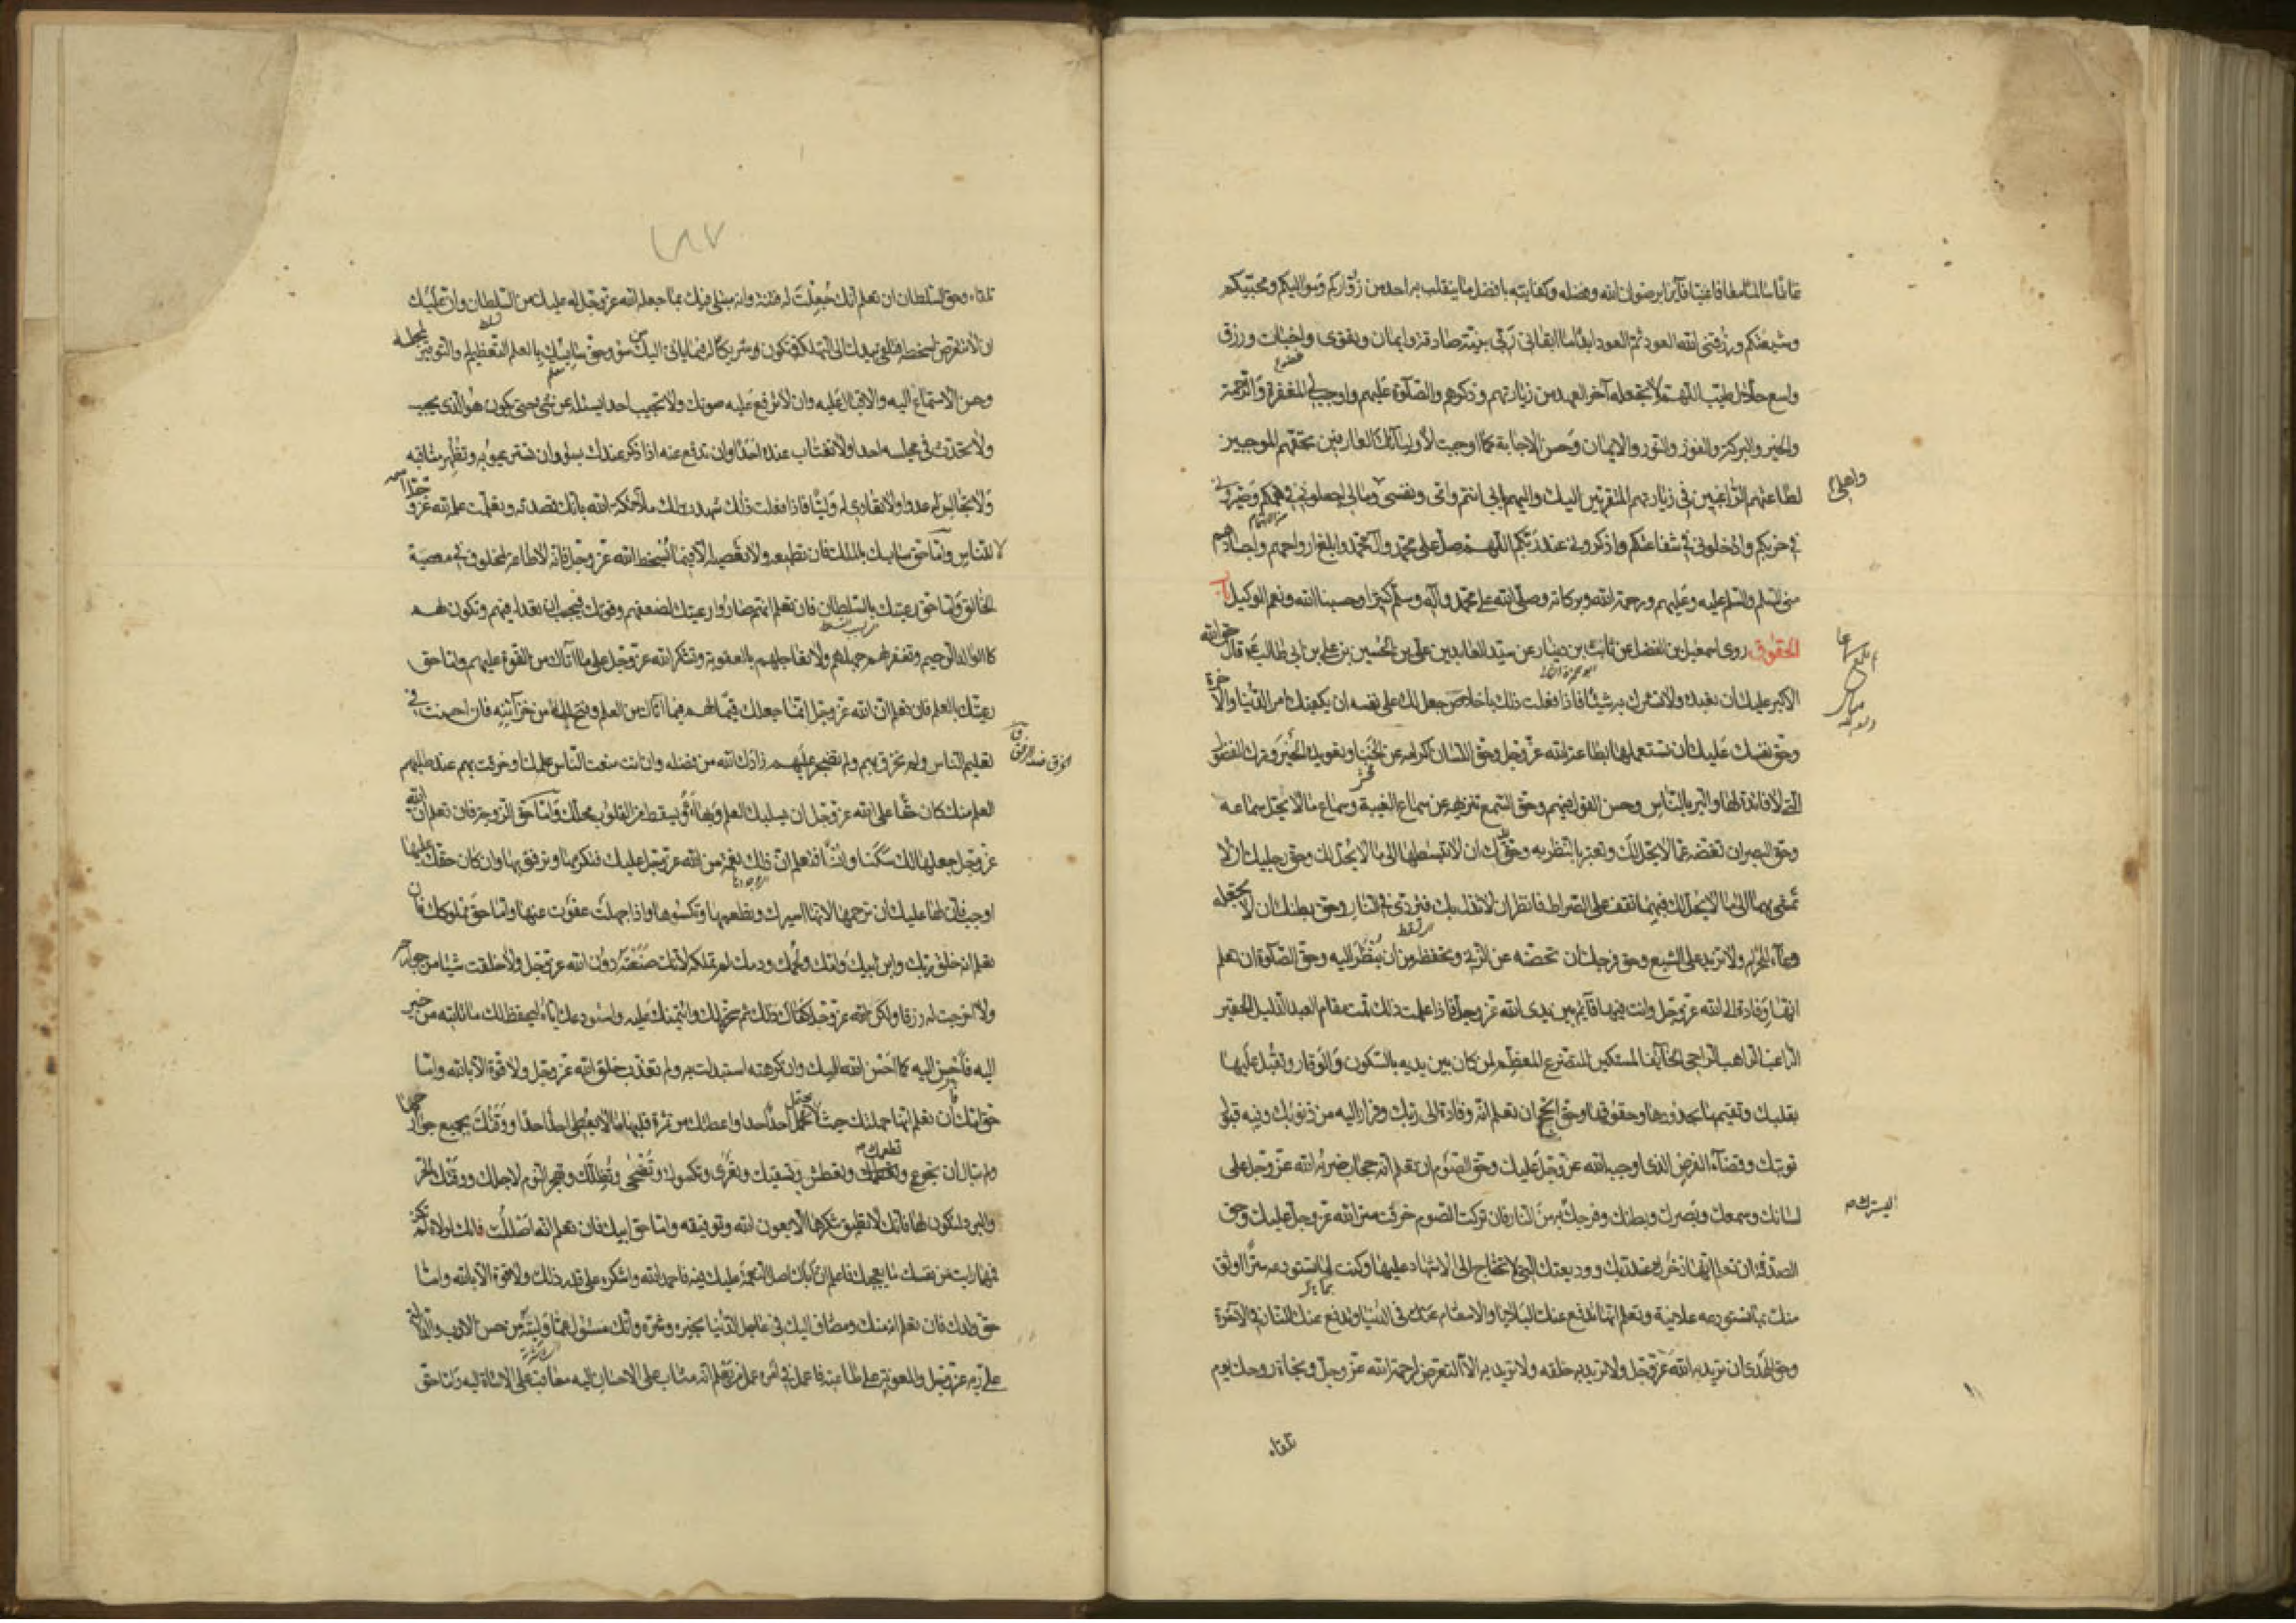 غانما سالما معافا غنيا فائزا برضوان الله وفضله وكفايته بافضل ما ينقلب به احد من زواركم ومواليكم ومحبيكم
وشيعتكم ورزقني الله العود ثم العود ابدا ما ابقاني ربي بنية صادقة وايمان وتقوى واخبات ورزق
واسع حلال طيب اللهم لا تجعله آخر العهد من زيارتهم وذكرهم والصلوة عليهم واوجب لي المغفرة والرحمة
والخير والبركة والفوز والنور والايمان وحسن الاجابة كما اوجبت لاوليائك العارفين بحقهم الموجبين
لطاعتهم الراغبين في زيارتهم المتقربين اليك واليهم بابي انتم وامي ونفسي ومالي اجعلوني في همكم وصيروني
واهلي
في حزبكم وادخلوني في شفاعتكم واذكروني عند ربكم اللهم صل على محمد وآل محمد وابلغ ارواحهم واجسادهم
مني السلم والسلم عليه وعليهم ورحمة الله وبركاته وصلى الله على محمد وآله وسلم كثيرا وحسبنا الله ونعم الوكيل باب
الحقوق روى اسمعيل بن الفضل عن ثابت بن دينار عن سيد العابدين علي بن الحسين بن علي بن ابي طالب ع قال حق الله
الاكبر عليك ان تعبده ولا تشرك به شيئا فاذا فعلت ذلك باخلاص جعل لك على نفسه ان يكفيك امر الدنيا والآخرة
وحق نفسك عليك ان تستعملها بطاعة الله عز وجل وحق اللسان اكرامه عن الخنا وتعويده الخير وترك الفضول
التي لا فائدة لها والبر بالناس وحسن القول فيهم وحق السمع تنزيهه عن سماع الغيبة وسماع ما لا يحل سماعه
وحق البصر ان تغضه عما لا يحل لك وتعتبر بالنظر به وحق يدك ان لا تبسطها الى ما لا يحل لك وحق رجليك ان لا
تمشي بهما الى ما لا يحل لك فبهما تقف على الصراط فانظر ان لا تزل بك فتردى في النار وحق بطنك ان لا تجعله
وعاء للحرام ولا تزيد على الشبع وحق فرجك ان تحصنه عن الزنا وتحفظه من ان ينظر اليه وحق الصلوة ان تعلم
انها وفادة الى الله عز وجل وانت فيها قائم بين يدي الله عز وجل فاذا علمت ذلك قمت مقام العبد الذليل الحقير
الراغب الراهب الراجي الخائف المستكين المتضرع المعظم لمن كان بين يديه بالسكون والوقار وتقبل عليها
بقلبك وتقيمها بحدودها وحقوقها وحق الحج ان تعلم انه وفادة الى ربك وفرار اليه من ذنوبك وفيه قبول
توبتك وقضاء الفرض الذي اوجبه الله عز وجل عليك وحق الصوم ان تعلم انه حجاب ضربه الله عز وجل على
لسانك وسمعك وبصرك وبطنك وفرجك ليسترك به من النار فان تركت الصوم خرقت ستر الله عز وجل عليك وحق
الصدقة ان تعلم انها ذخرك عند ربك ووديعتك التي لا تحتاج الى الاشهاد عليها وكنت لما تستودعه سرا اوثق
منك بما تستودعه علانية وتعلم انها تدفع عنك البلايا والاسقام عنك في الدنيا وتدفع عنك النار في الآخرة
وحق الهدي ان تريد به الله عز وجل ولا تريد به خلقه ولا تريد به الا التعرض لرحمة الله عز وجل ونجاة روحك يوم
تلقاه
٢٨٧
تلقاه وحق السلطان ان تعلم انك جعلت له فتنة وانه مبتلى فيك بما جعله الله عز وجل له عليك من السلطان وان عليك
ان لا تتعرض لسخطه فتلقي بيدك الى التهلكة وتكون شريكا له فيما ياتي اليك من سوء وحق سايسك بالعلم التعظيم له والتوقير لمجلسه
وحسن الاستماع اليه والاقبال عليه وان لا ترفع عليه صوتك ولا تجيب احدا يسئله عن شي حتى يكون هو الذي يجيب
ولا تحدث في مجلسه احدا ولا تغتاب عنده احدا وان تدفع عنه اذا ذكر عندك بسوء وان تستر عيوبه وتظهر مناقبه
ولا تجالس له عدوا ولا تعادي له وليا فاذا فعلت ذلك شهد لك ملائكة الله بانك قصدته وتعلمت علمه لله عز وجل اسمه
لا للناس واما حق سايسك بالملك فان تطيعه ولا تعصيه الا فيما يسخط الله عز وجل فانه لا طاعة لمخلوق في معصية
الخالق واما حق رعيتك بالسلطان فان تعلم انهم صاروا رعيتك لضعفهم وقوتك فيجب ان تعدل فيهم وتكون لهم
كالوالد الرحيم وتغفر لهم جهلهم ولا تعاجلهم بالعقوبة وتشكر الله عز وجل على ما آتاك من القوة عليهم واما حق
رعيتك بالعلم فان تعلم ان الله عز وجل انما جعلك قيما لهم فيما آتاك من العلم وفتح لك من خزائنه فان احسنت في
تعليم الناس ولم تخرق بهم ولم تضجر عليهم زادك الله من فضله وان انت منعت الناس علمك او خرقت بهم عند طلبهم
الخرق ضد الرفق ق
العلم منك كان حقا على الله عز وجل ان يسلبك العلم وبهاءه ويسقط من القلوب محلك واما حق الزوجة فان تعلم ان الله
عز وجل جعلها لك سكنا وانسا فتعلم ان ذلك نعمة من الله عز وجل عليك فتكرمها وترفق بها وان كان حقك عليها
اوجب فان لها عليك ان ترحمها لانها اسيرك وتطعمها وتكسوها واذا جهلت عفوت عنها واما حق مملوكك فان
تعلم انه خلق ربك وابن ابيك وامك ولحمك ودمك لم تملكه لانك صنعته دون الله عز وجل ولا خلقت شيئا من جوارحه
ولا اخرجت له رزقا ولكن الله عز وجل كفاك ذلك ثم سخره لك وائتمنك عليه واستودعك اياه ليحفظ لك ما تاتيه من خير
اليه فاحسن اليه كما احسن الله اليك وان كرهته استبدلت به ولم تعذب خلق الله عز وجل ولا قوة الا بالله واما
حق امك فان تعلم انها حملتك حيث لا يحتمل احد احدا واعطتك من ثمرة قلبها ما لا يعطي احد احدا ووقتك بجميع جوارحها
ولم تبال ان تجوع وتطعمك وتعطش وتسقيك وتعرى وتكسوك وتضحى وتظلك وتهجر النوم لاجلك ووقتك الحر
والبرد لتكون لها فانك لا تطيق شكرها الا بعون الله وتوفيقه واما حق ابيك فان تعلم انه اصلك فانك لولاه لم تكن
فمهما رايت من نفسك ما يعجبك فاعلم ان اباك اصل النعمة عليك فيه فاحمد الله واشكره على قدر ذلك ولا قوة الا بالله واما
حق ولدك فان تعلم انه منك ومضاف اليك في عاجل الدنيا بخيره وشره وانك مسئول عما وليته من حسن الادب والدلالة
على ربه عز وجل والمعونة على طاعته فاعمل في امره عمل من يعلم انه مثاب على الاحسان اليه معاقب على الاساءة اليه واما حق